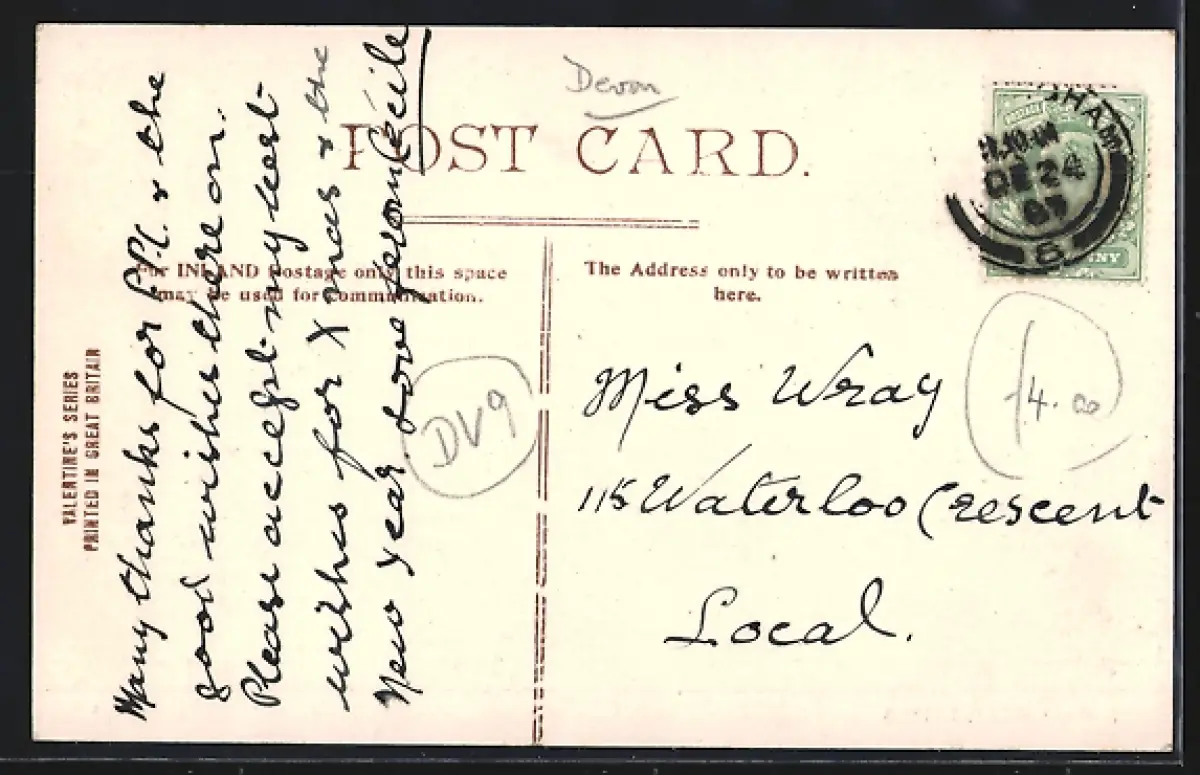 Devon
POST CARD.
For INLAND Postage only this space
may be used for communication.
The Address only to be written
here.
VALENTINE'S SERIES
PRINTED IN GREAT BRITAIN
Many thanks for P.P.C. & the
good wishes there on.
Please accept my best
wishes for Xmas & the
New Year. love from Cécile
DV9
Miss Wray
115 Waterloo Crescent
Local.
HAM
DE 24
07
6
NNY
14.00